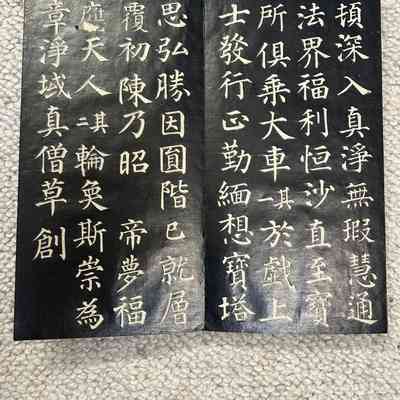 頓深入真淨無瑕慧通
法界福利恒沙直至寶
所俱乘大車其一於戲上
士發行正勤緬想寶塔
思弘勝因圓階已就層
覆初陳乃昭 帝夢福
應天人其二輪奐斯崇為
章淨域真僧草創